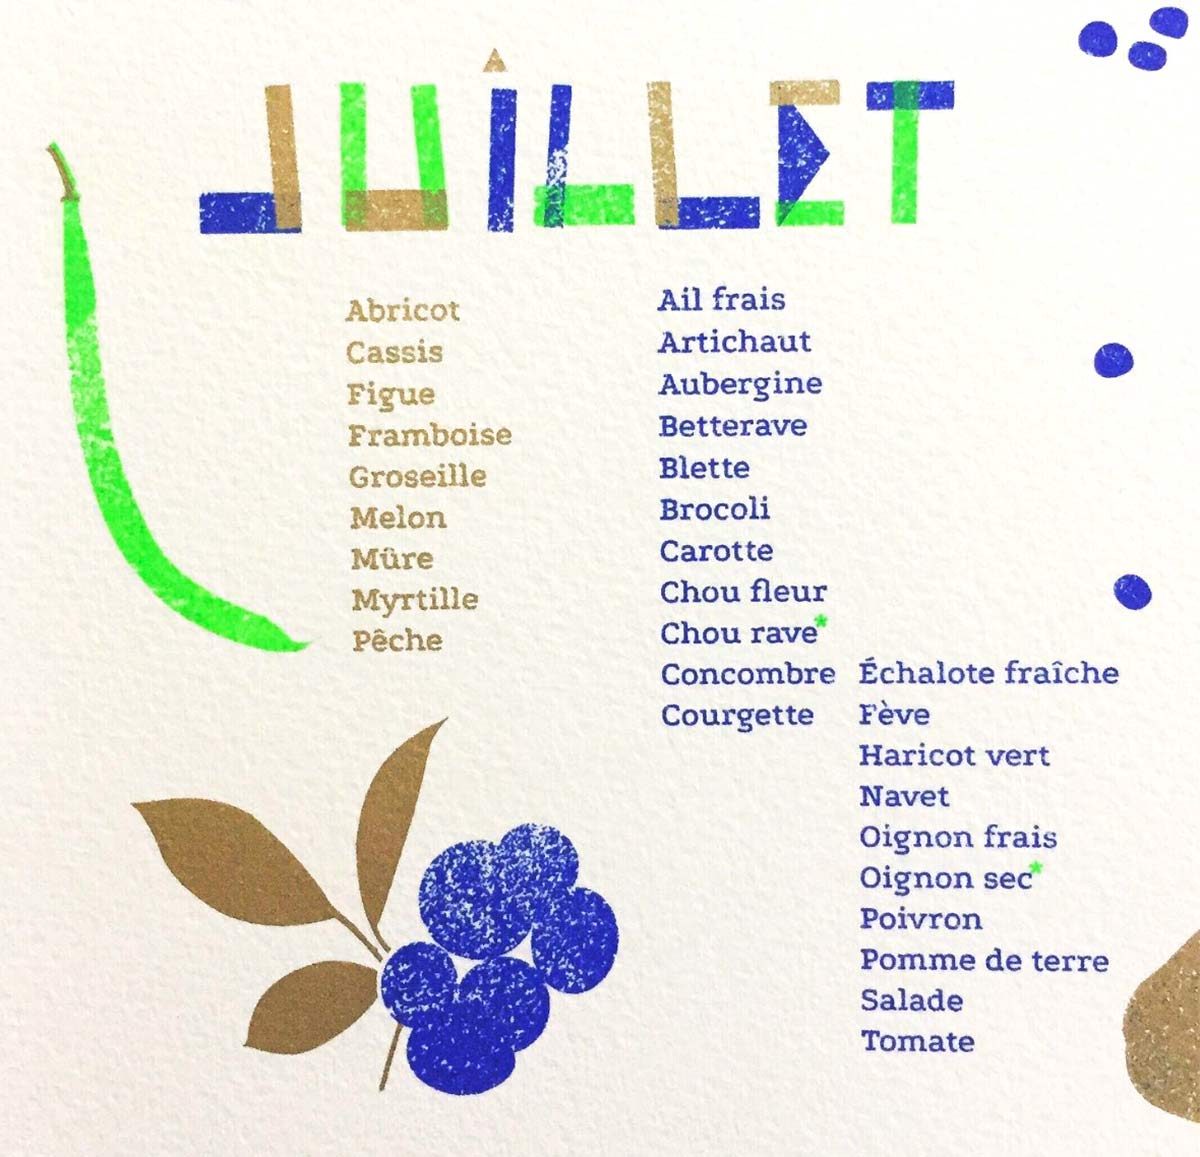 JUILLET
Abricot
Cassis
Figue
Framboise
Groseille
Melon
Mûre
Myrtille
Pêche
Ail frais
Artichaut
Aubergine
Betterave
Blette
Brocoli
Carotte
Chou fleur
Chou rave*
Concombre
Courgette
Échalote fraîche
Fève
Haricot vert
Navet
Oignon frais
Oignon sec*
Poivron
Pomme de terre
Salade
Tomate